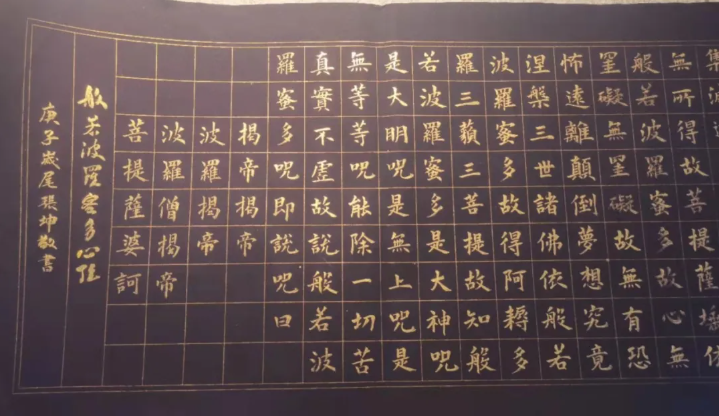 集
無所得故菩提薩埵依
般若波羅蜜多故心無
罣礙無罣礙故無有恐
怖遠離顛倒夢想究竟
涅槃三世諸佛依般若
波羅蜜多故得阿耨多
羅三藐三菩提故知般
若波羅蜜多是大神咒
是大明咒是無上咒是
無等等咒能除一切苦
真實不虛故說般若波
羅蜜多咒即說咒曰
揭帝揭帝
波羅揭帝
波羅僧揭帝
菩提薩婆訶
般若波羅蜜多心経
庚子歲尾張坤敬書